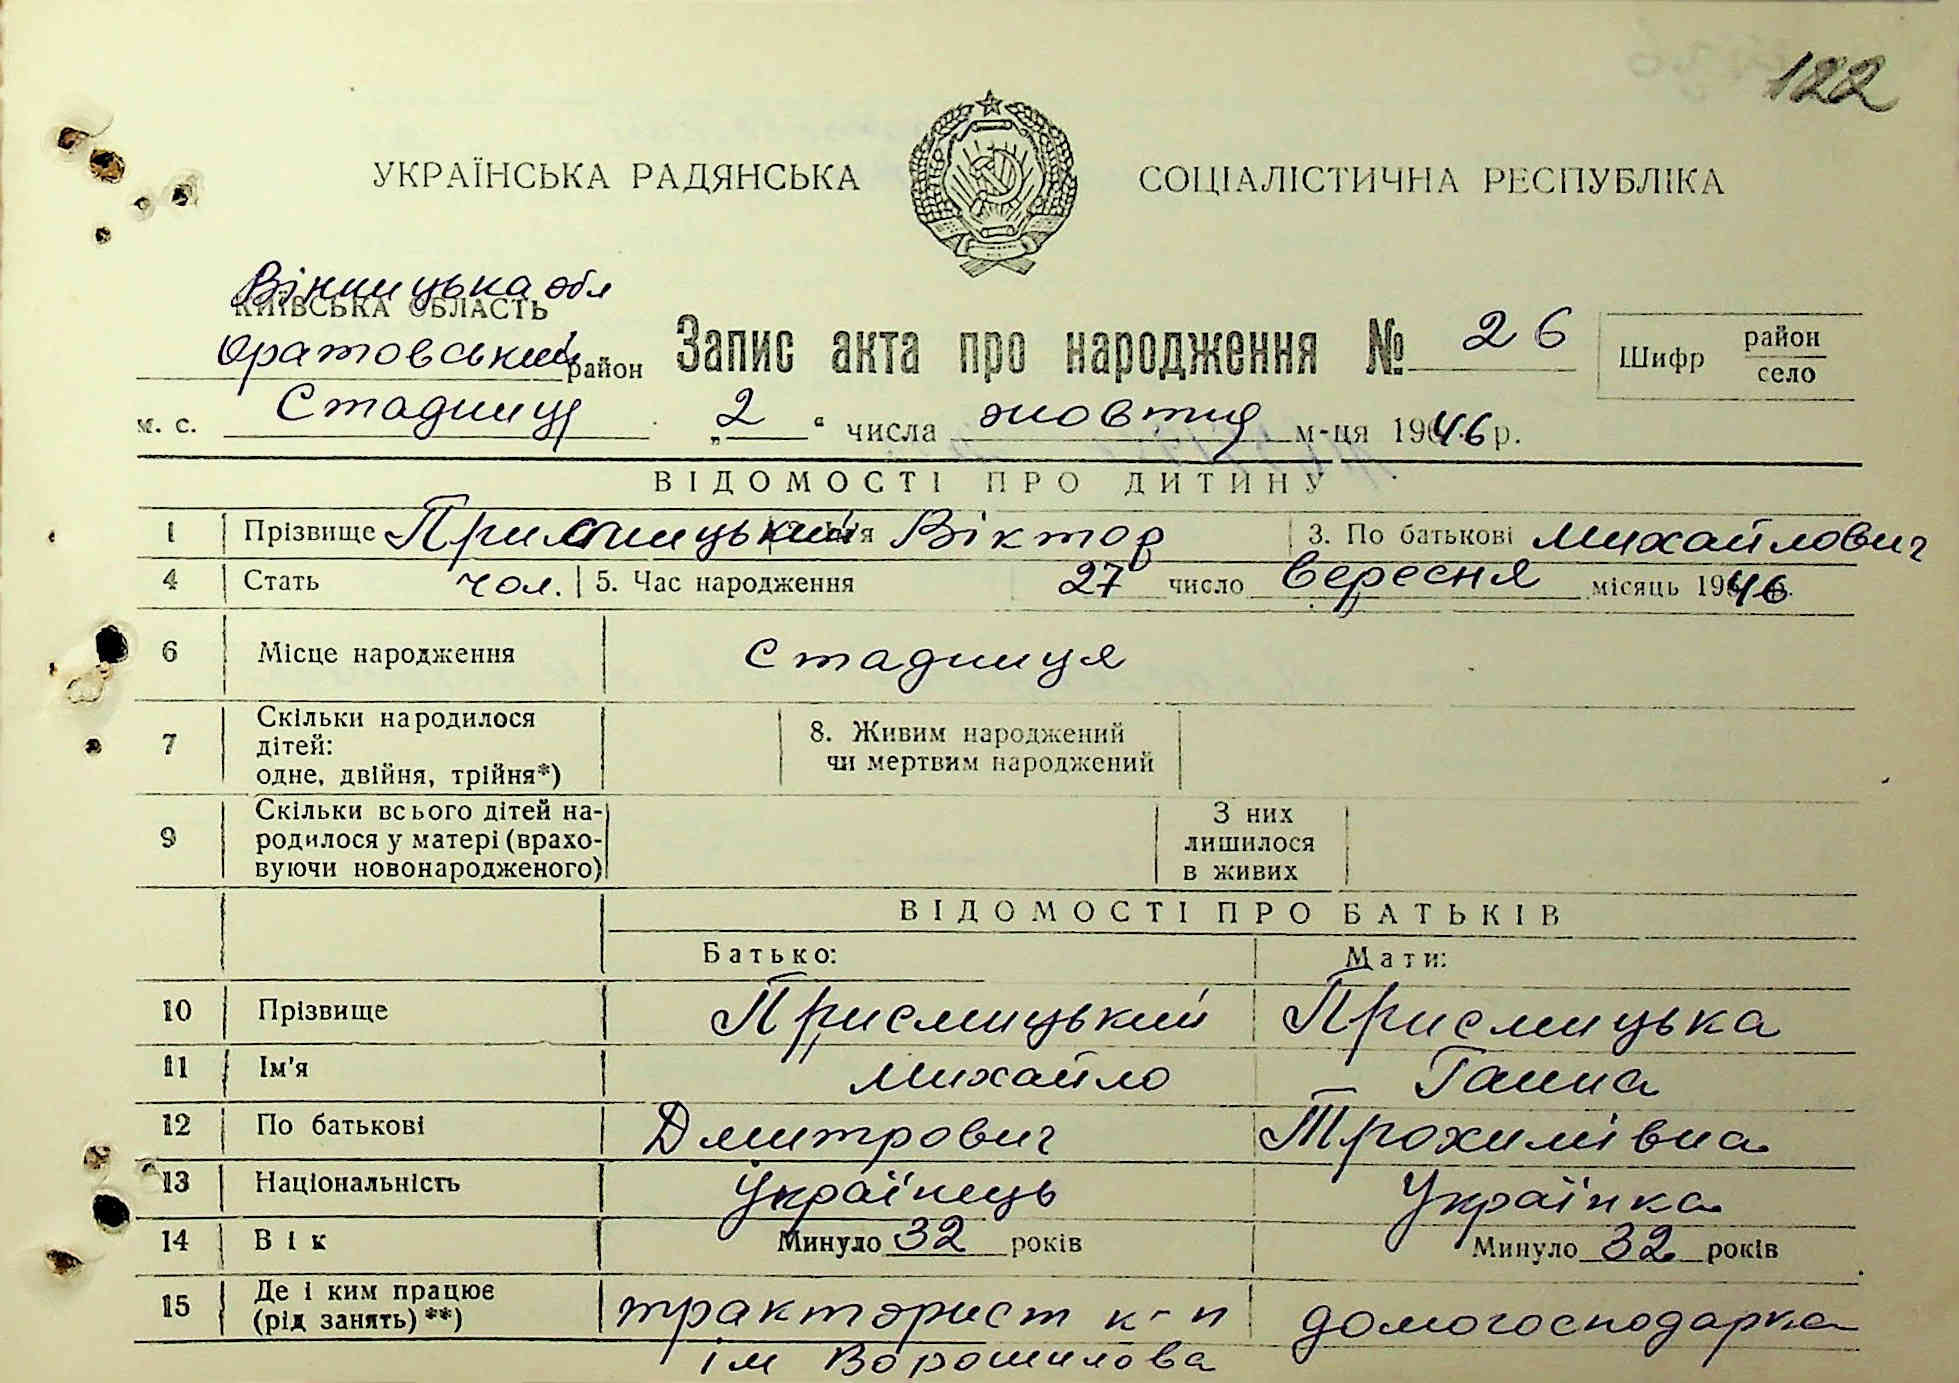 122
УКРАЇНСЬКА РАДЯНСЬКА СОЦІАЛІСТИЧНА РЕСПУБЛІКА
Вінницька обл
КИЇВСЬКА ОБЛАСТЬ
Оратовський район Запис акта про народження № 26 Шифр район село
м. с. Стадниця „2“ числа жовтня м-ця 1946 р.
ВІДОМОСТІ ПРО ДИТИНУ
1 Прізвище Приємицький Віктор 3. По батькові Михайлович
4 Стать чол. 5. Час народження 27 число вересня місяць 1946
6 Місце народження Стадниця
7 Скільки народилося
дітей:
одне, двійня, трійня*)
8. Живим народжений
чи мертвим народжений
9 Скільки всього дітей на-
родилося у матері (врахо-
вуючи новонародженого)
З них
лишилося
в живих
ВІДОМОСТІ ПРО БАТЬКІВ
Батько: Мати:
10 Прізвище Приємицький Приємицька
11 Ім'я Михайло Ганна
12 По батькові Дмитрович Трохимівна
13 Національність Українець Українка
14 Вік Минуло 32 років Минуло 32 років
15 Де і ким працює
(рід занять)**)
тракторист к-п
ім Ворошилова
домогосподарка